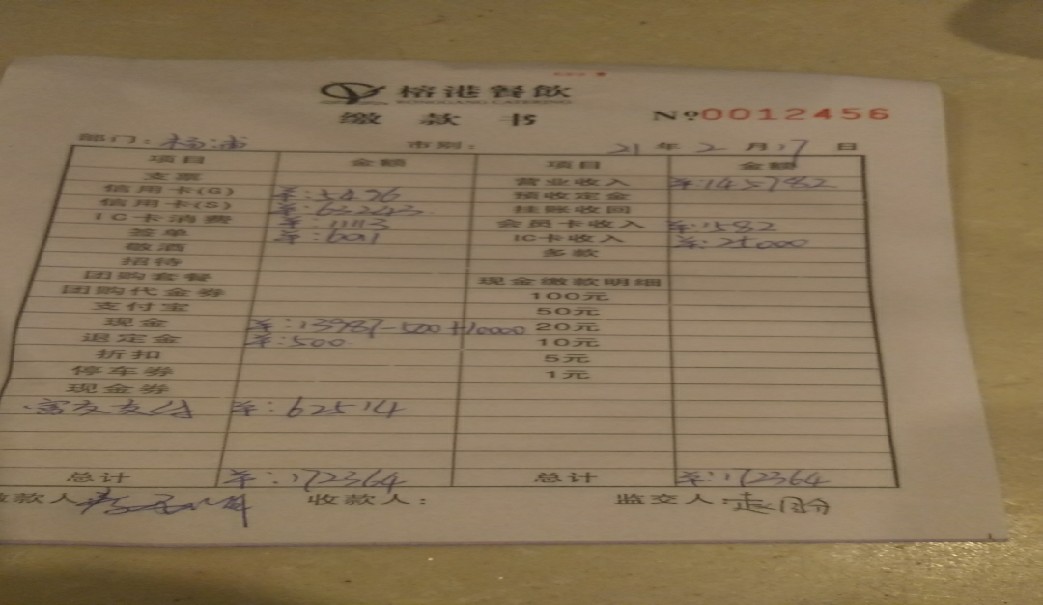 榕港餐飲
RONGGANG CATERING
缴款书
Nº0012456
部门:杨浦 市别: 21年2月17日
项目 金额 项目 金额
支票 营业收入 ¥:145782
信用卡(G) ¥:5496 预收定金
信用卡(S) ¥:63243 挂账收回
IC卡消费 ¥:11113 会员卡收入 ¥:1582
签单 ¥:6011 IC卡收入 ¥:25000
敬酒 多款
招待
团购套餐 现金缴款明细
团购代金券 100元
支付宝 50元
现金 ¥:13987-500+10000 20元
退定金 ¥:500 10元
折扣 5元
停车券 1元
现金券
富友支付 ¥:62514
总计 ¥:172364 总计 ¥:172364
款人 收款人: 监交人: